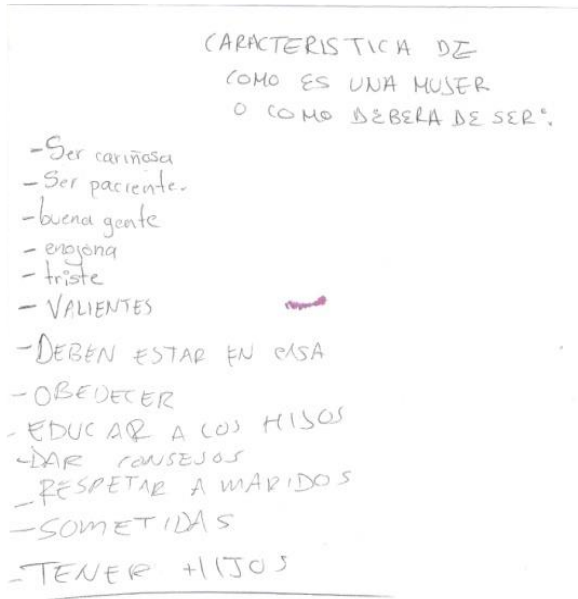 CARACTERISTICA DE
COMO ES UNA MUJER
O COMO DEBERA DE SER:
-Ser cariñosa
-Ser paciente.
-buena gente
- enojona
- triste
- VALIENTES
-DEBEN ESTAR EN CASA
-OBEDECER
-EDUCAR A LOS HIJOS
-DAR CONSEJOS
-RESPETAR A MARIDOS
-SOMETIDAS
-TENER HIJOS